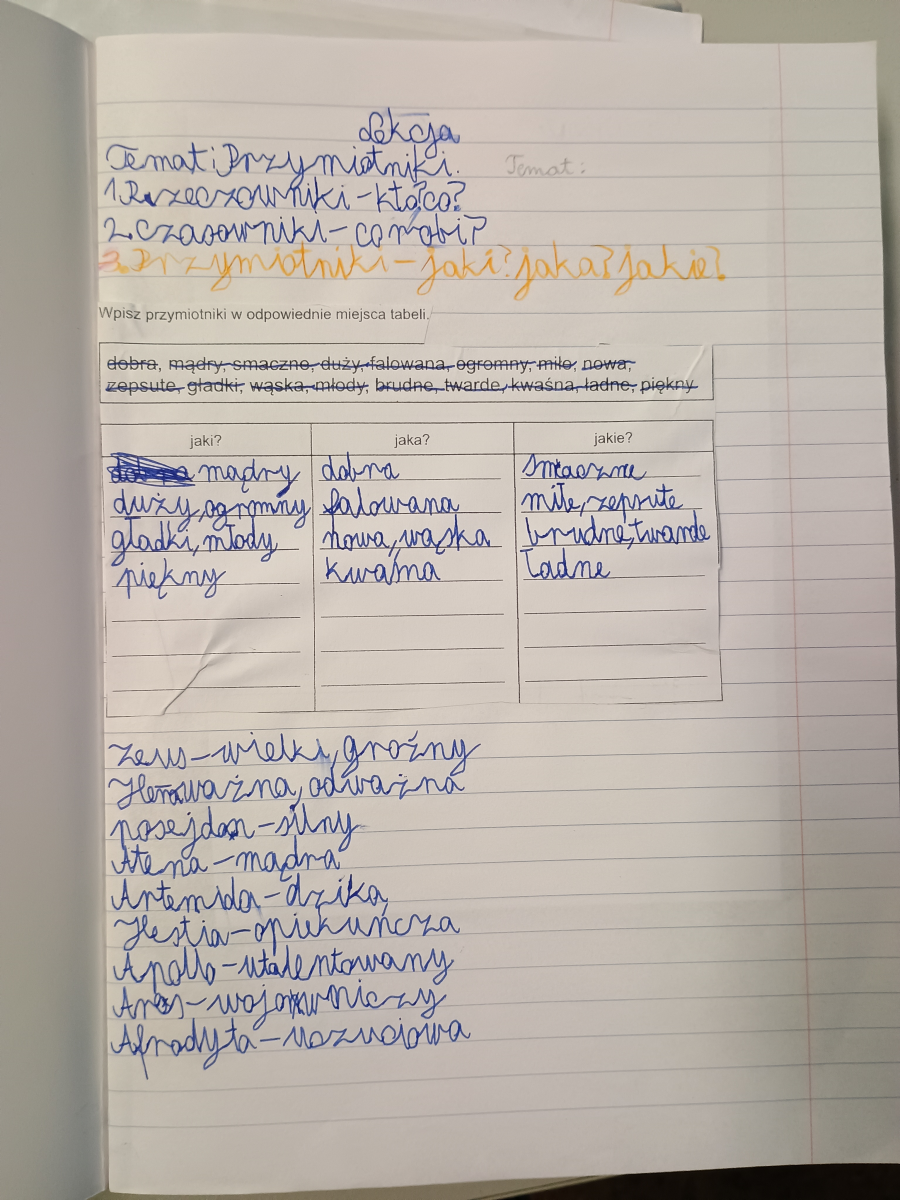 Lekcja
Temat: Przymiotniki. Temat:
1. Rzeczowniki - kto? co?
2. Czasowniki - co robi?
3. Przymiotniki - jaki? jaka? jakie?
Wpisz przymiotniki w odpowiednie miejsca tabeli.
dobra, mądry, smaczne, duży, falowana, ogromny, miłe, nowa,
zepsute, gładki, wąska, młody, brudne, twarde, kwaśna, ładne, piękny
jaki? jaka? jakie?
dobra mądry dobra smaczne
duży, ogromny falowana miłe, zepsute
gładki, młody nowa, wąska brudne, twarde
piękny kwaśna ładne
Zeus - wielki, groźny
Hera ważna, odważna
posejdon - silny
Atena - mądra
Artemida - dzika,
Hestia - opiekuńcza
Apollo - utalentowany
Ares - wojowniczy
Afrodyta - uczuciowa